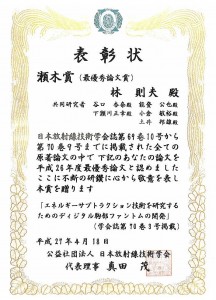 表彰状
瀬木賞（最優秀論文賞）
林 則夫 殿
共同研究者 谷口 杏奈殿 能登 公也殿
下瀬川正幸殿 小倉 敏裕殿
上井 邦雄殿
日本放射線技術学会誌第69巻10号から
第70巻9号までに掲載された全ての
原著論文の中で下記のあなたの論文を
平成26年度最優秀論文と認めました
ここに不断の研鑽に心から敬意を表し
本賞を贈ります
「エネルギーサブトラクション技術を研究する
ためのディジタル胸部ファントムの開発」
（学会誌第70巻3号掲載）
平成27年4月18日
公益社団法人 日本放射線技術学会
代表理事 真田 茂